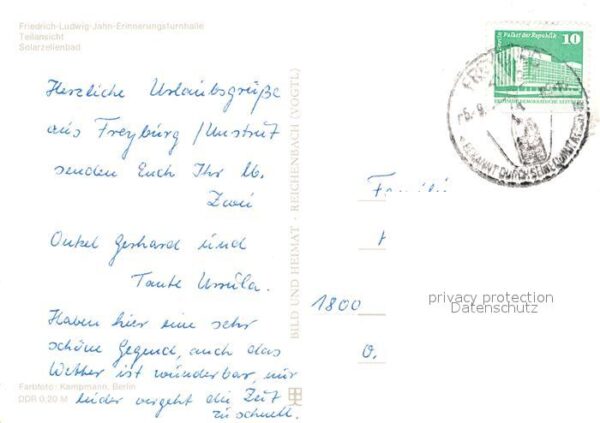 Friedrich-Ludwig-Jahn-Erinnerungsturnhalle
Teilansicht
Solarzellenbad
Palast der Republik
10
Herzliche Urlaubsgrüße
aus Freyburg / Unstrut
senden Euch Ihr lb.
Zwei
Onkel Gerhard und
Tante Ursula.
Haben hier eine sehr
schöne Gegend, auch das
Wetter ist wunderbar, nur
leider vergeht die Zeit
zu schnell.
Familie
1800
privacy protection
Datenschutz
BILD UND HEIMAT · REICHENBACH (VOGTL)
Farbfoto: Kampmann, Berlin
DDR 0,20 M